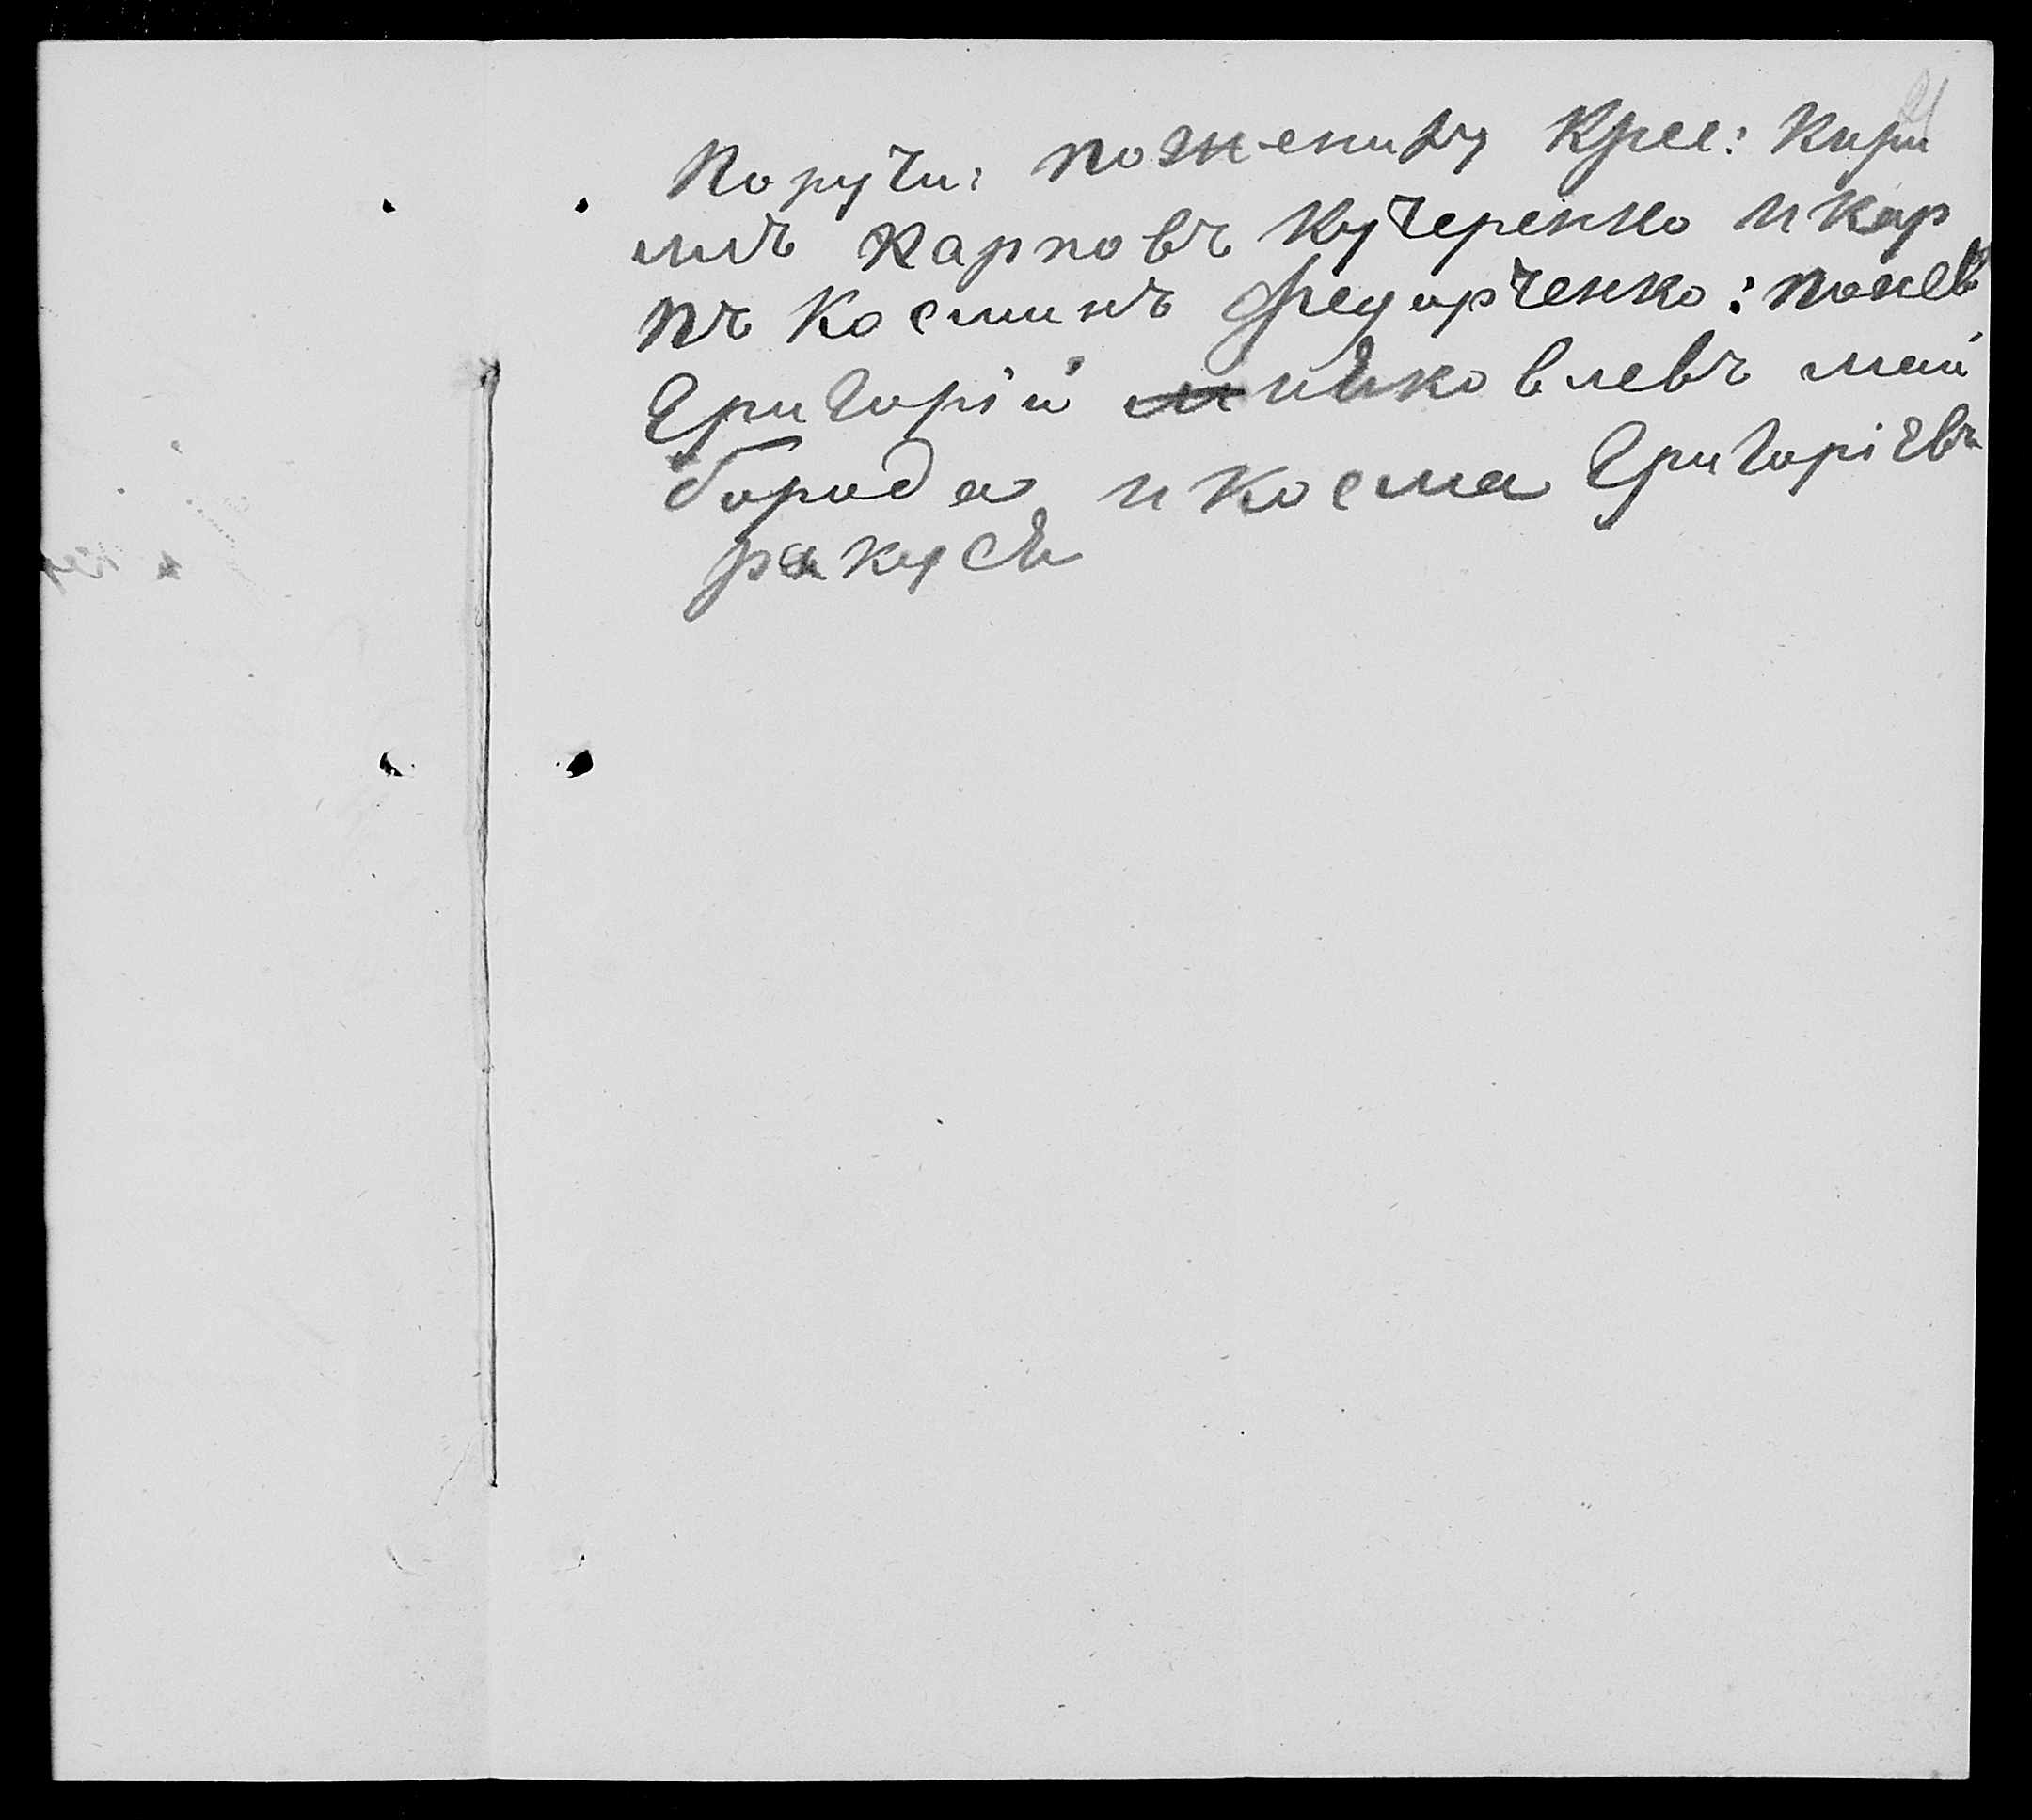 Поручи: пожениху Крес: Кири
илъ Карповъ Кучеренко и Кар
пъ Косминъ Федорченко: поневѣ
Григорій Яковлевъ май
борода и Косма Григоріевъ
ракусъ